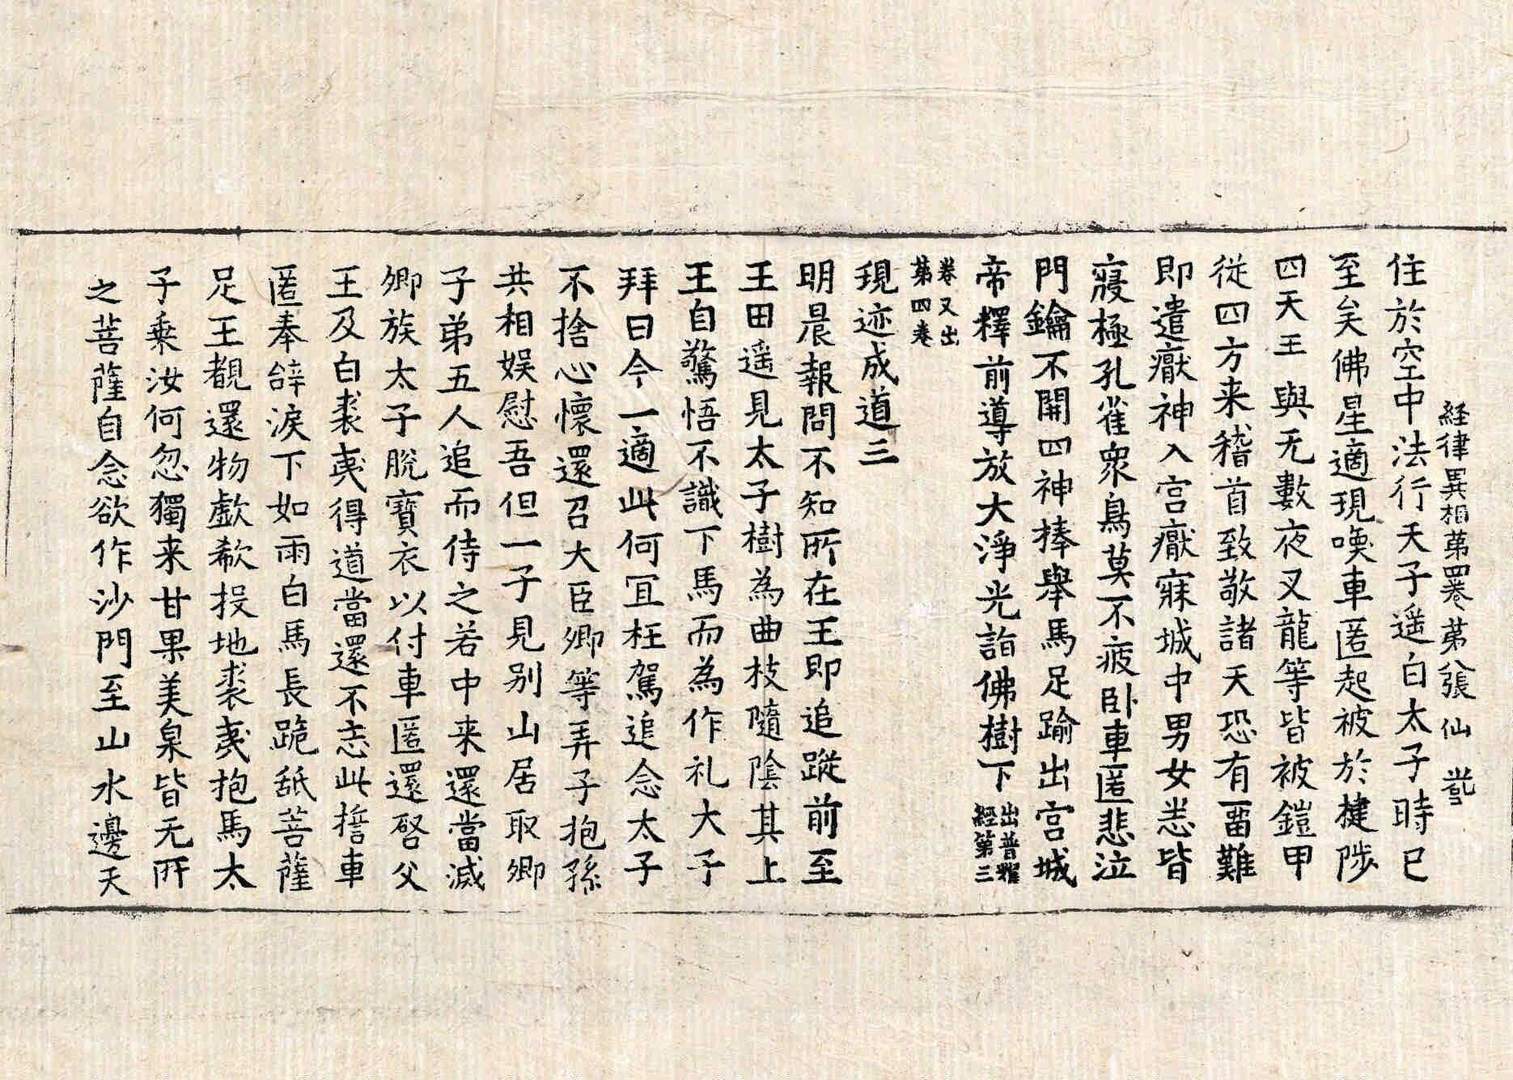 経律異相苐四卷 苐八張 仙
住於空中法行天子遥白太子時已
至矣佛星適現喚車匿起被於揵陟
四天王與无數夜叉龍等皆被鎧甲
従四方来稽首致敬諸天恐有留難
即遣猒神入宫猒寐城中男女悉皆
寢極孔雀衆鳥莫不疲卧車匿悲泣
門鑰不開四神捧舉馬足踰出宫城
帝釋前導放大淨光詣佛樹下出普耀經第三
卷又出第四卷
現迹成道三
明晨報問不知所在王即追蹤前至
王田遥見太子樹為曲枝隨隂其上
王自驚悟不識下馬而為作礼大子
拜曰今一適此何冝枉駕追念太子
不捨心懷還召大臣卿等弄子抱孫
共相娱慰吾但一子見别山居取卿
子弟五人追而侍之若中来還當滅
卿族太子脱寶衣以付車匿還啓父
王及白裘夷得道當還不忘此誓車
匿奉辝淚下如雨白馬長跪舐菩薩
足王覩還物歔欷投地裘夷抱馬太
子乘汝何忽獨来甘果美泉皆无所
之菩薩自念欲作沙門至山水邊天